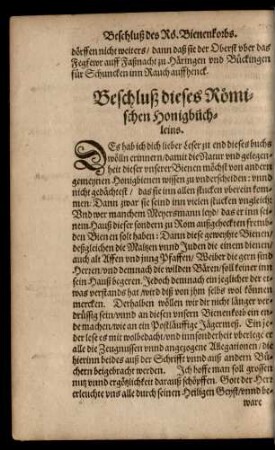 Beschluß des Rs. Bienenkorbs.
dörffen nicht weiters / dann daß sie der Oberst vber das
Fegfewr auff Faßnacht zu Häringen vnd Bückingen
für Schuncken inn Rauch auffhenck.
Beschluß dieses Römi-
schen Honigbüch-
leins.
DEs hab ich dich lieber Leser zu end dieses buchs
wölln erinnern / damit die Natur vnd gelegen-
heit dieser vnserer Bienen möchst von andern
gemeynen Honigbienen wissen zu vnderscheiden: vnnd
nicht gedächtest / das sie inn allen stucken vberein kom-
men: Dann zwar sie seind inn vielen stucken vngleich:
Vnd wer manchem Meyersmann leyd / das er inn sei-
nem Hauß dieser sondern zu Rom außgeheckten frembs-
den Bien eit solt haben: Dann diese geweyhte Bienen /
deßgleichen die Maltzen vnnd Juden die einem dienen /
auch alt Affen vnd jung Pfaffen / Weiber die gern sind
Herren / vnd demnach die wilden Bären / soll keiner inn
sein Hauß begeren. Jedoch demnach ein jeglicher der et-
was verstands hat / wird diß von jhm selbs wol können
mercken. Derhalben wöllen wir dir nicht länger ver-
drüssig sein / vnnd an diesen vnsern Bienenkorb ein en-
de machen / wie an ein Postläuffige Jägermeß. Ein je-
der lese es mit wolbedacht / vnd innsonderheit vberlege er
alle die Zeugnussen vnnd angezogene Allegationen / die
hierinn beides auß der Schrifft vnnd auß andern Bü-
chern beigebracht werden. Ich hoffe man soll grossen
nutz vnnd ergötzlichkeit darauß schöpffen. Gott der Herr
erleuchte vns alle durch seinen Heiligen Geyst / vnnd be-
ware